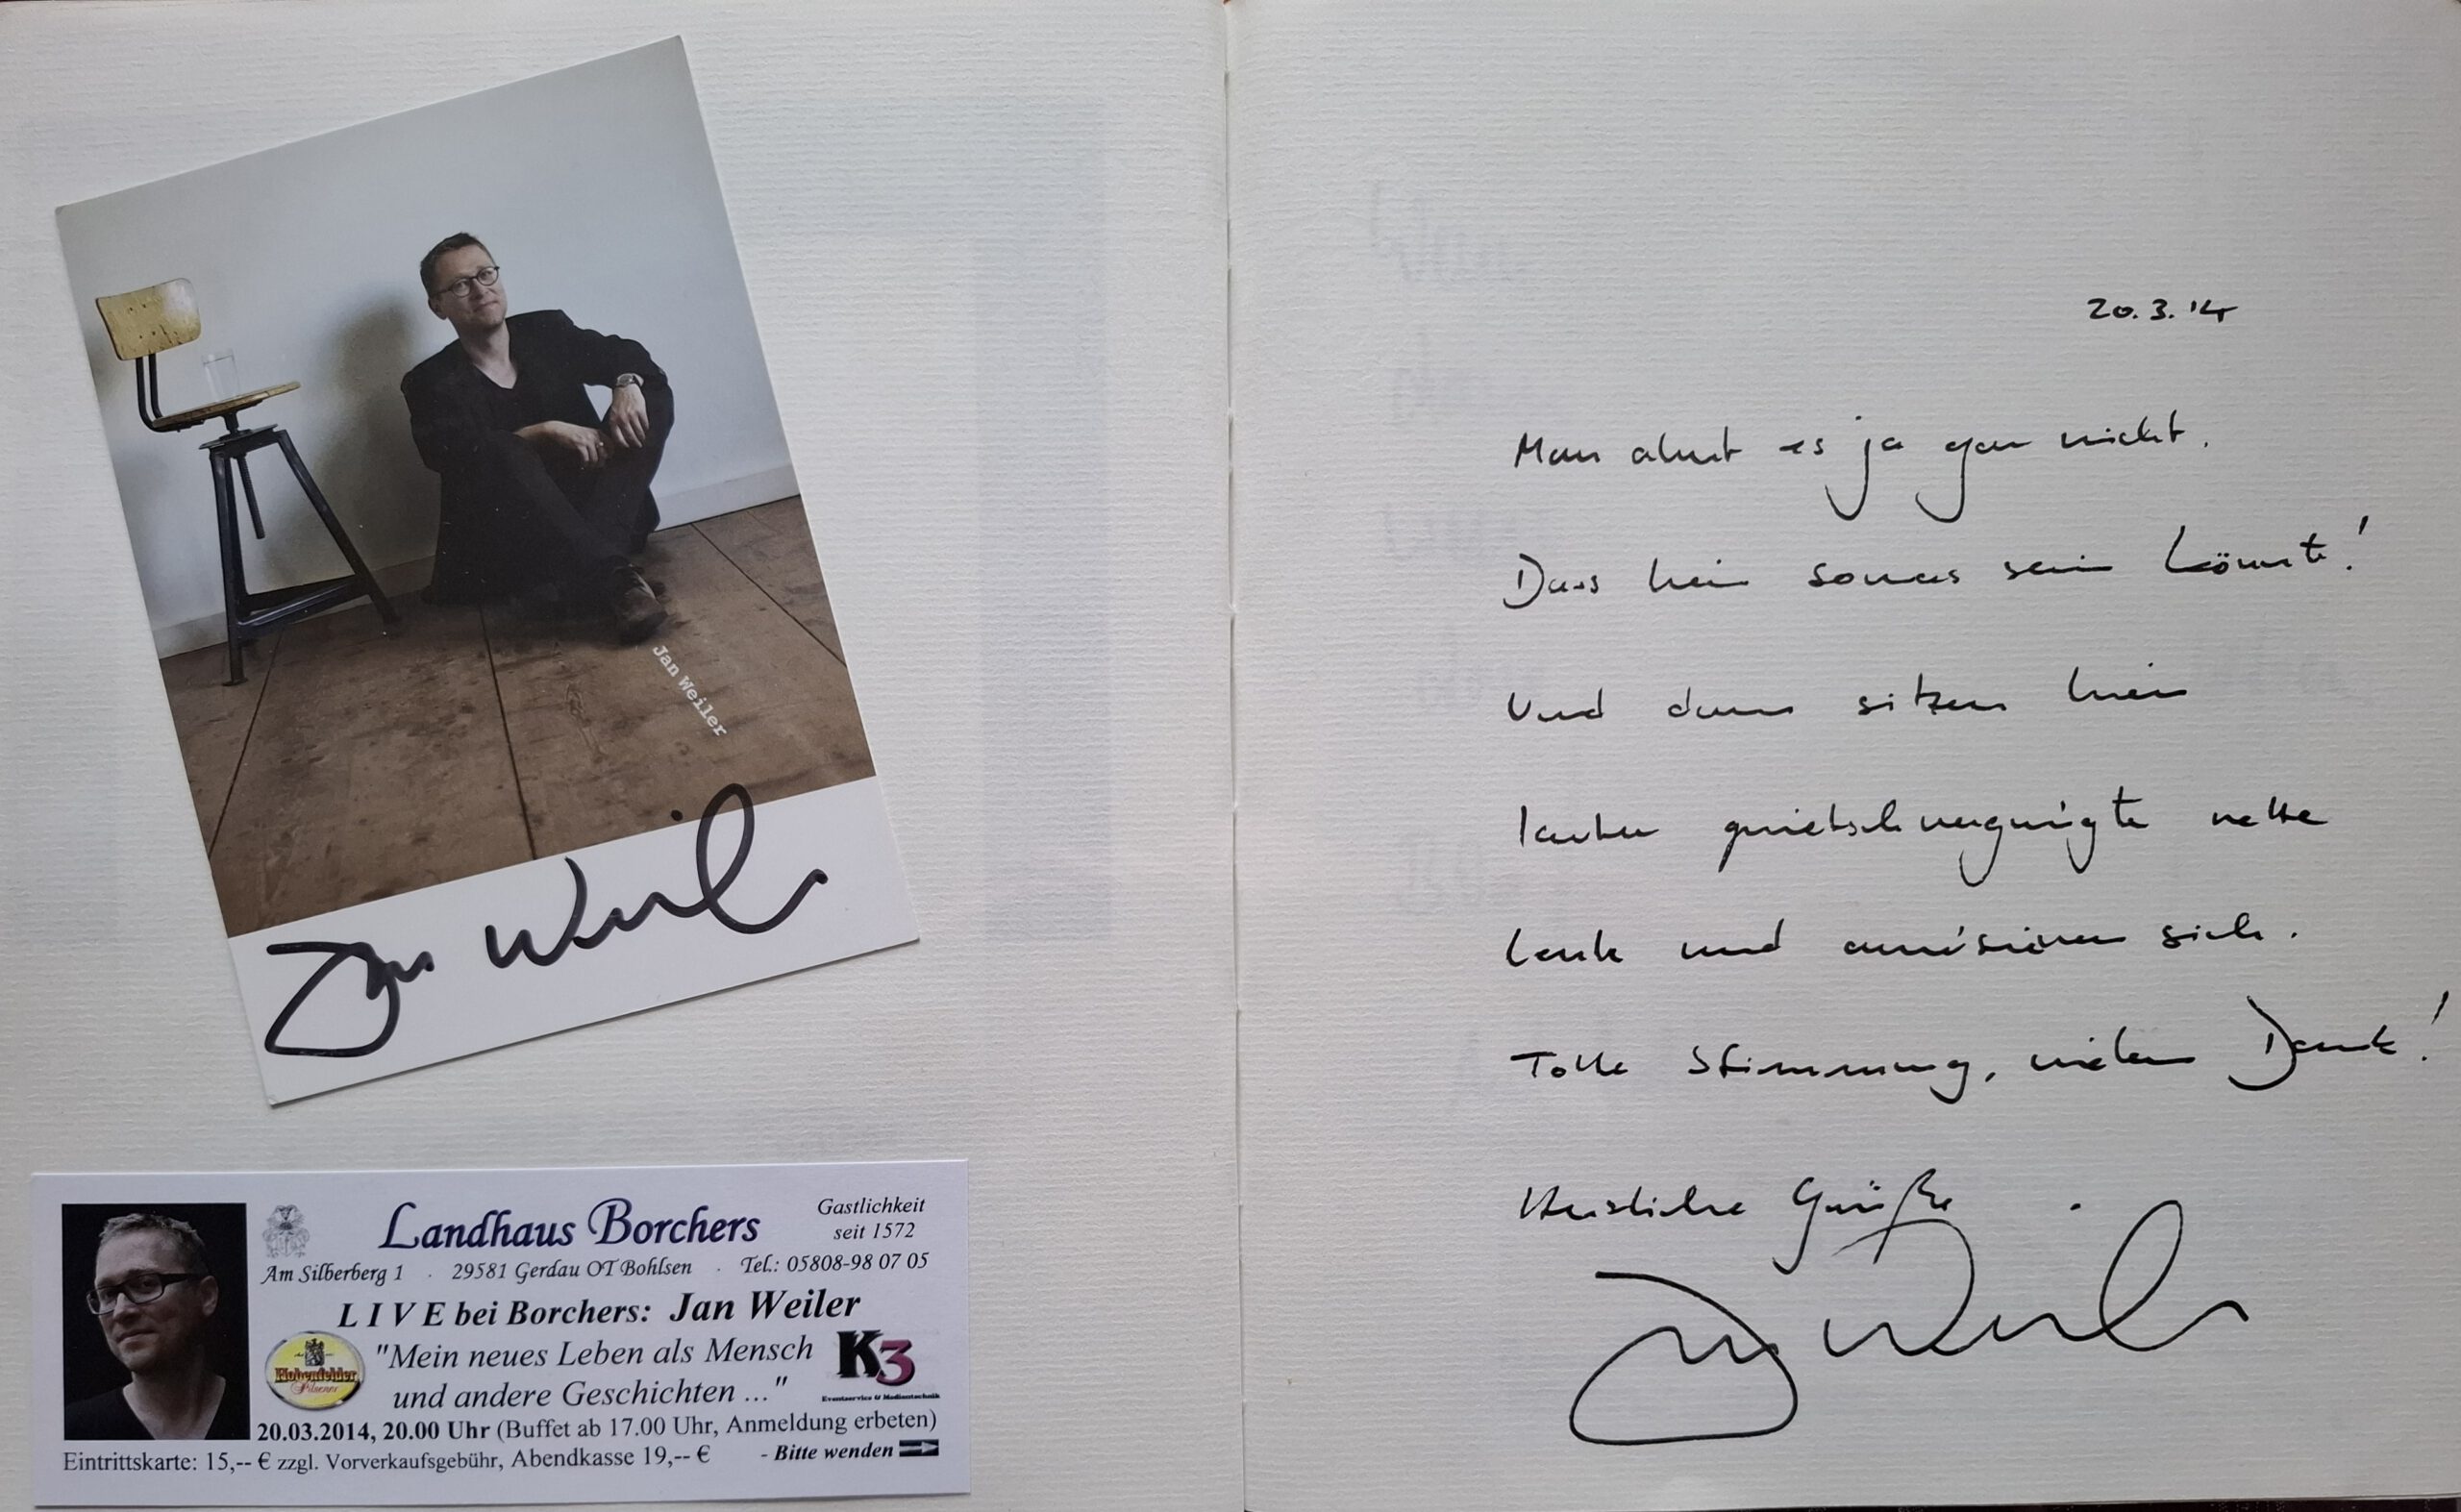 Jan Weiler
Jan Weiler
Landhaus Borchers
Gastlichkeit
seit 1572
Am Silberberg 1 . 29581 Gerdau OT Bohlsen . Tel.: 05808-98 07 05
L I V E bei Borchers: Jan Weiler
Hohenfelder
Pilsener
"Mein neues Leben als Mensch
und andere Geschichten ..."
K3
Eventservice & Medientechnik
20.03.2014, 20.00 Uhr (Buffet ab 17.00 Uhr, Anmeldung erbeten)
Eintrittskarte: 15,-- € zzgl. Vorverkaufsgebühr, Abendkasse 19,-- €
- Bitte wenden
20.3.'14
Man ahnt es ja gar nicht.
Dass hier sowas sein könnte!
Und dann sitzen hier
lauter quietschvergnügte nette
Leute und amüsieren sich.
Tolle Stimmung, vielen Dank!
Herzliche Grüße
Jan Weiler